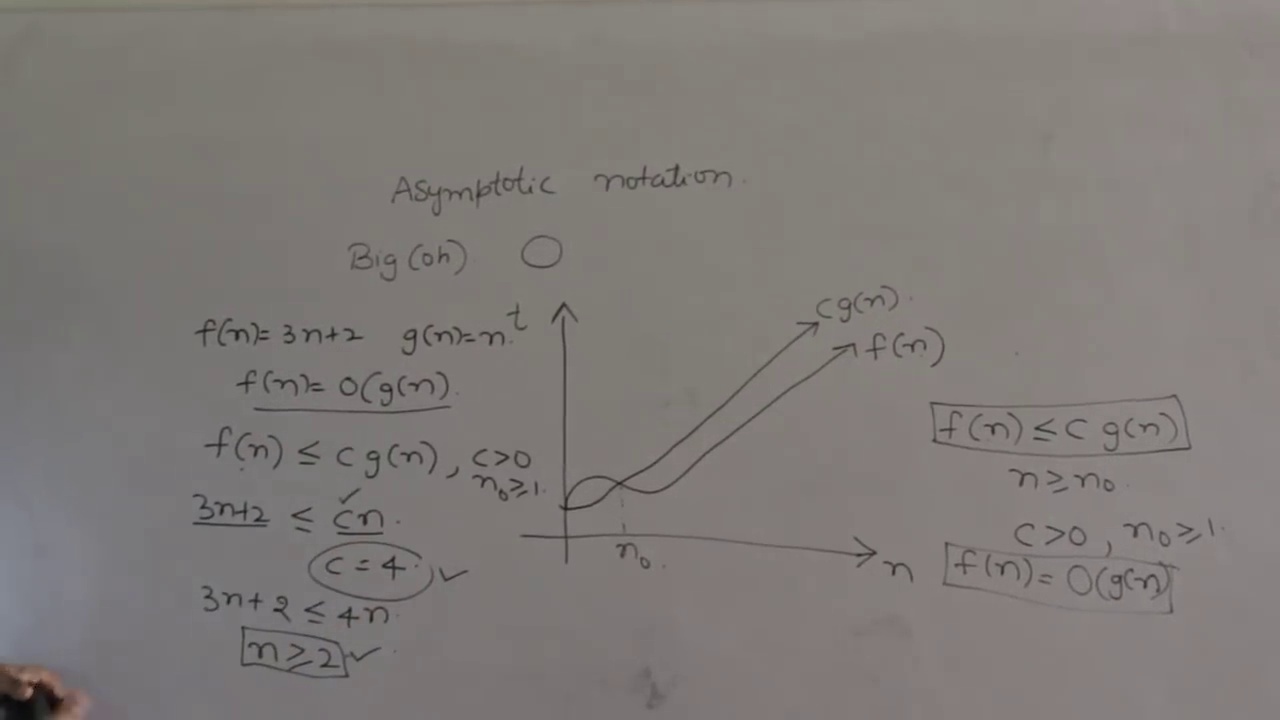 Asymptotic notation.
Big (oh) O
f(n)= 3n+2 g(n)=n.
f(n)= O(g(n).
f(n) ≤ c g(n), c>0
n₀≥1.
3n+2 ≤ cn.
c = 4.
3n+2 ≤ 4n.
n≥2
t
cg(n).
f(n)
n₀.
n
f(n) ≤ c g(n)
n≥n₀.
c>0, n₀≥1.
f(n)= O(g(n)